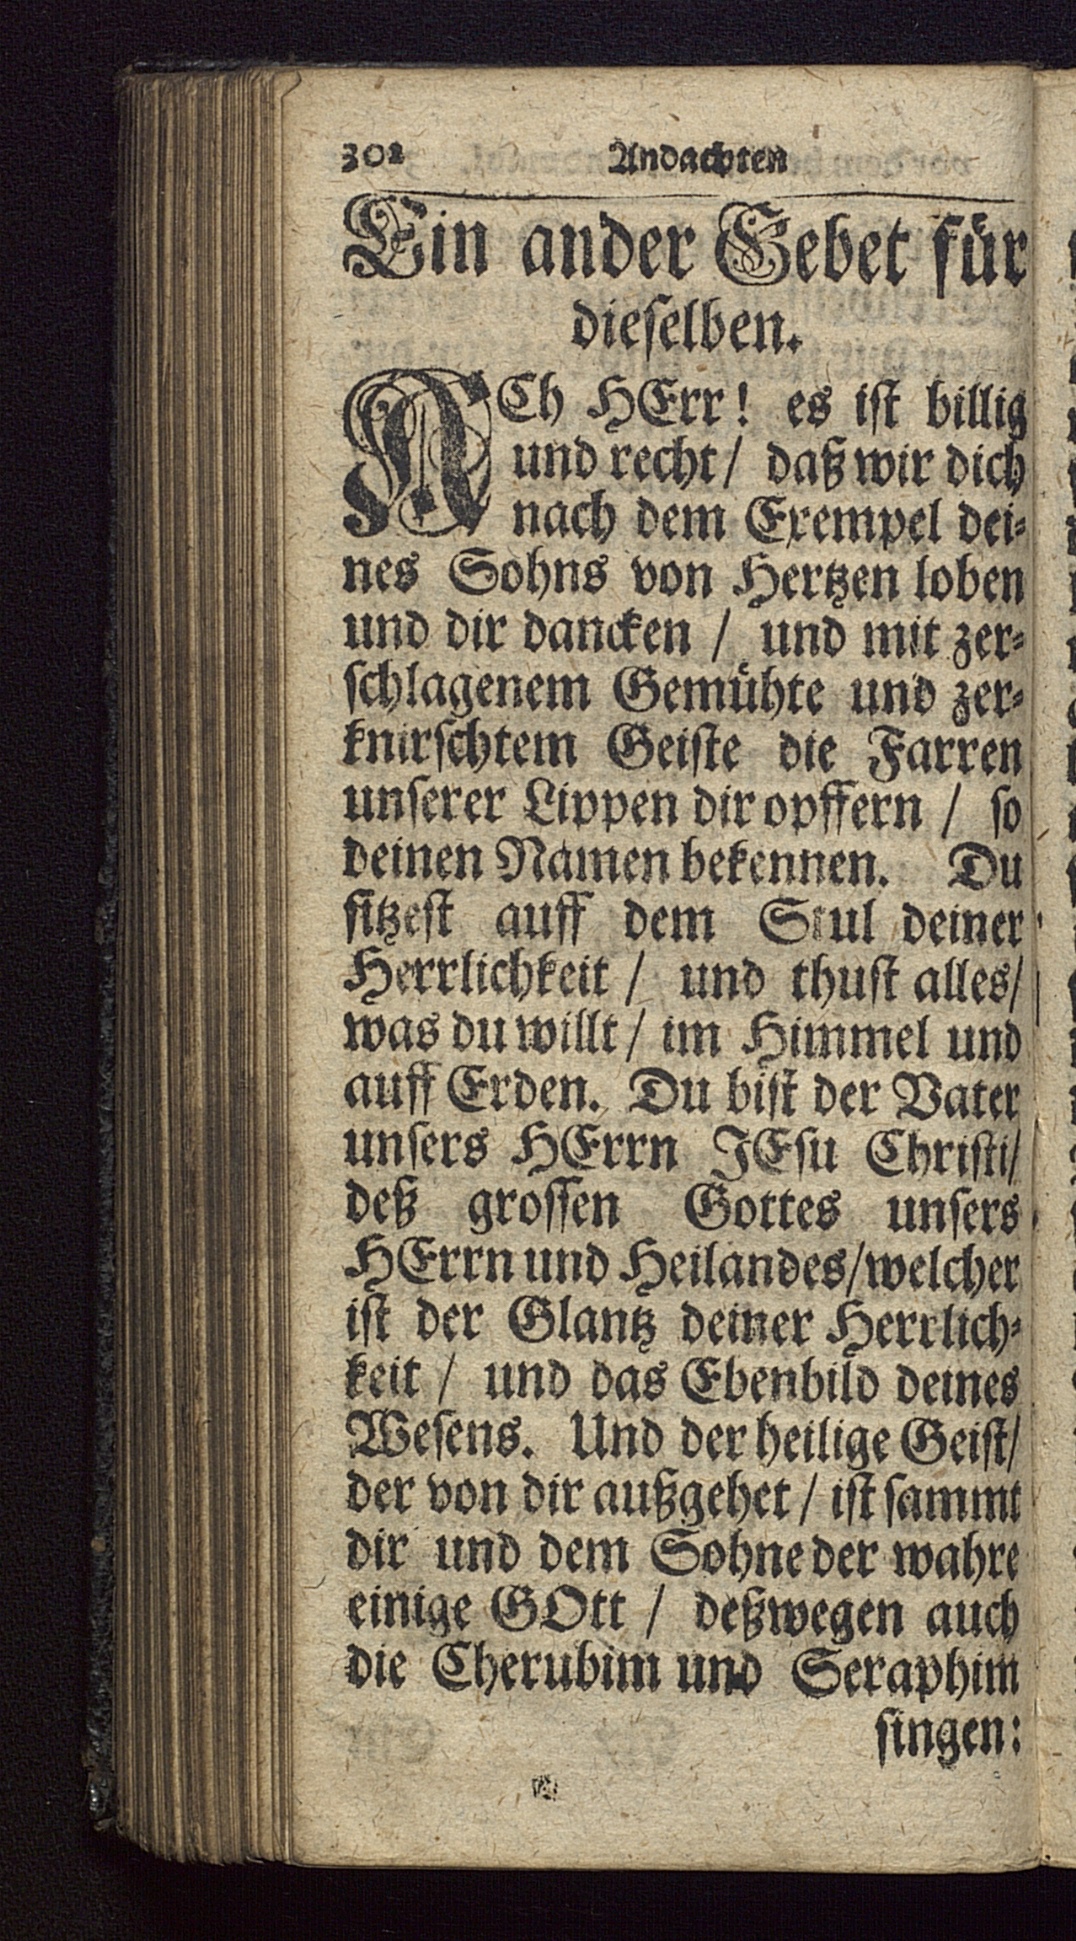 302 Andachten
Ein ander Gebet für
dieselben.
ACh HErr! es ist billig
und recht/ daß wir dich
nach dem Exempel dei-
nes Sohns von Hertzen loben
und dir dancken / und mit zer-
schlagenem Gemühte und zer-
knirschtem Geiste die Farren
unserer Lippen dir opffern / so
deinen Namen bekennen. Du
sitzest auff dem Stul deiner
Herrlichkeit / und thust alles/
was du willt / im Himmel und
auff Erden. Du bist der Vater
unsers HErrn JEsu Christi/
deß grossen Gottes unsers
HErrn und Heilandes/welcher
ist der Glantz deiner Herrlich-
keit / und das Ebenbild deines
Wesens. Und der heilige Geist/
der von dir außgehet / ist sammt
dir und dem Sohne der wahre
einige GOtt / deßwegen auch
die Cherubim und Seraphim
singen: